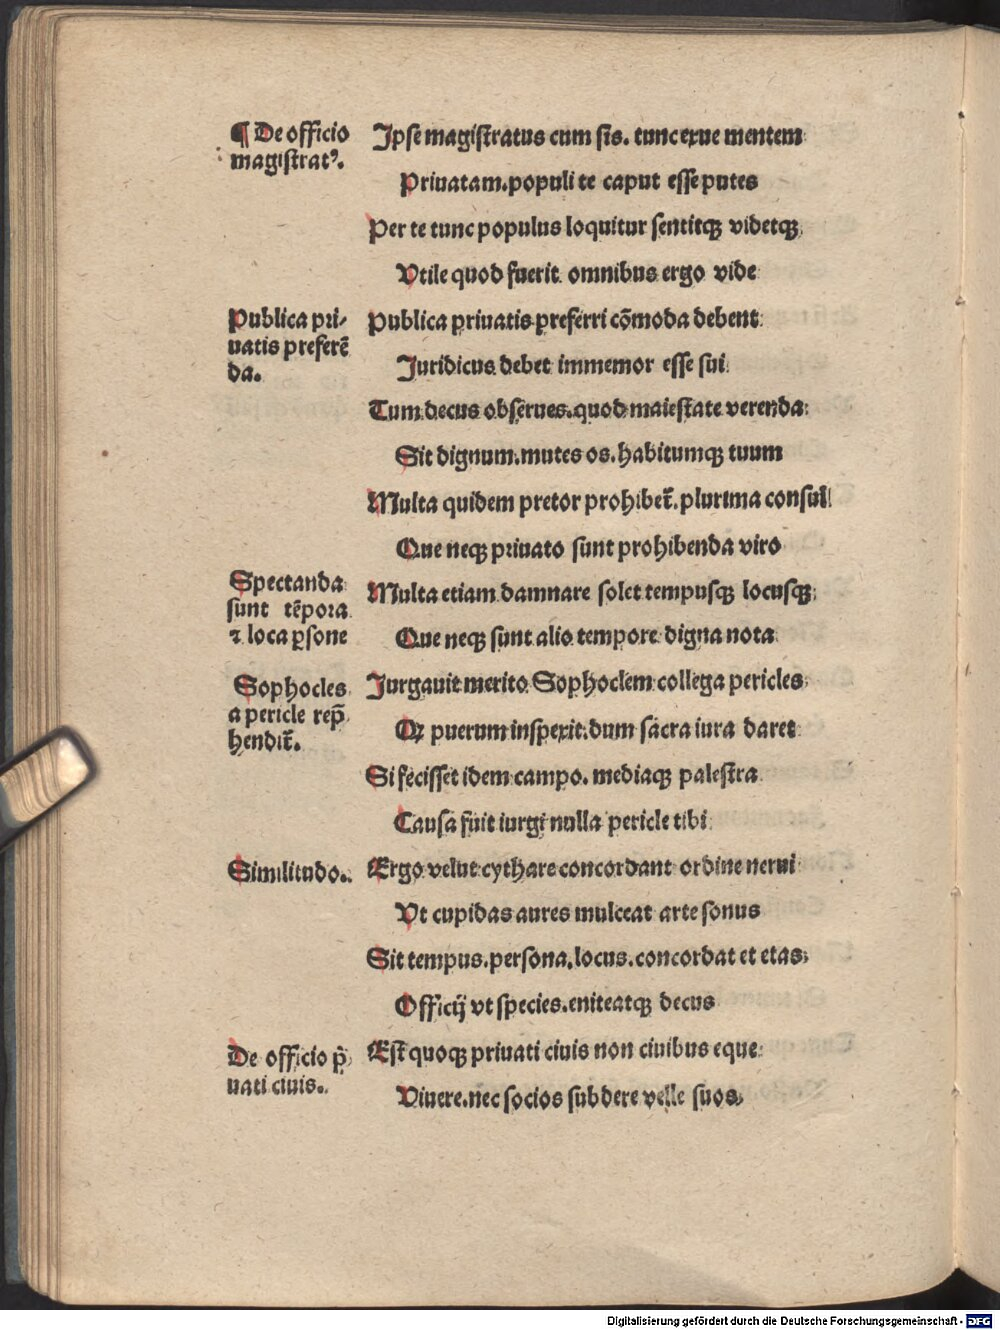 ¶ De officio
magistratꝰ.
Ipse magistratus cum sis. tunc exue mentem
Priuatam. populi te caput esse putes
Per te tunc populus loquitur sentitqꝫ videtqꝫ
Vtile quod fuerit omnibus ergo vide
Publica pri-
uatis preferē
da.
Publica priuatis preferri cōmoda debent
Juridicus debet immemor esse sui
Tum decus obserues. quod maiestate verenda
Sit dignum. mutes os. habitumqꝫ tuum
Multa quidem pretor prohibet᷑. plurima consul
Que neqꝫ priuato sunt prohibenda viro
Spectanda
sunt tēpora
⁊ loca ꝑsone
Multa etiam damnare solet tempusqꝫ locusqꝫ
Que neqꝫ sunt alio tempore digna nota
Sophocles
a pericle rep̄
hendit᷑.
Iurgauit merito Sophoclem collega pericles
Qꝫ puerum inspexit. dum sacra iura daret
Si fecisset idem campo. mediaqꝫ palestra
Causa fuit iurgi nulla pericle tibi
Similitudo.
Ergo velut cythare concordant ordine nerui
Vt cupidas aures mulceat arte sonus
Sit tempus. persona. locus. concordat et etas
Officij vt species. eniteatqꝫ decus
De officio p̄
uati ciuis.
Est quoqꝫ priuati ciuis non ciuibus eque
Viuere. nec socios subdere velle suos
Digitalisierung gefördert durch die Deutsche Forschungsgemeinschaft - DFG